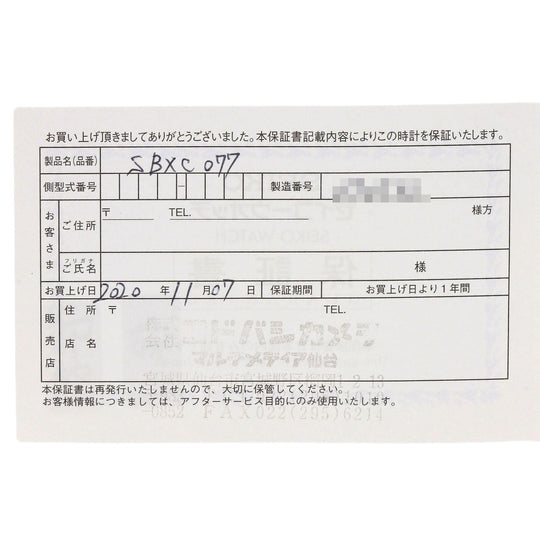 お買い上げ頂きましてありがとうございました。本保証書記載内容によりこの時計を保証いたします。
製品名(品番) SBXC 077
側型式番号 – 製造番号
お客さま
ご住所 〒 TEL. 様方
フリガナ
ご氏名 様
お買上げ日 2020 年 11 月 07 日 保証期間 お買上げ日より1年間
販売店
住所 〒 TEL.
店名
株式会社 ヨドバシカメラ
マルチメディア仙台
-0852 FAX022(295)6214
本保証書は再発行いたしませんので、大切に保管してください。
お客様情報につきましては、アフターサービス目的にのみ使用いたします。
SEIKO WATCH
保証書